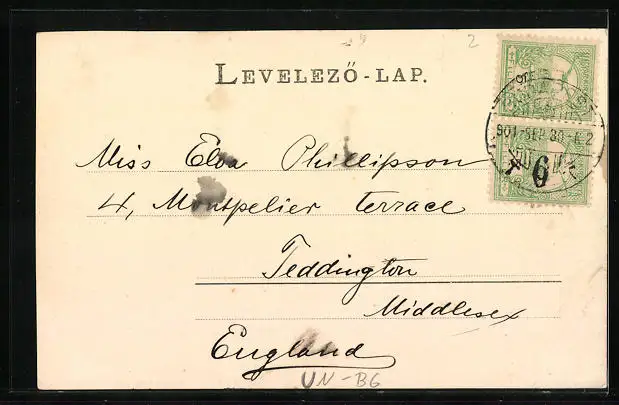 2
LEVELEZŐ-LAP.
Miss Elva Phillipson
4, Montpelier Terrace
Teddington
Middlesex
England
UN-BG
6